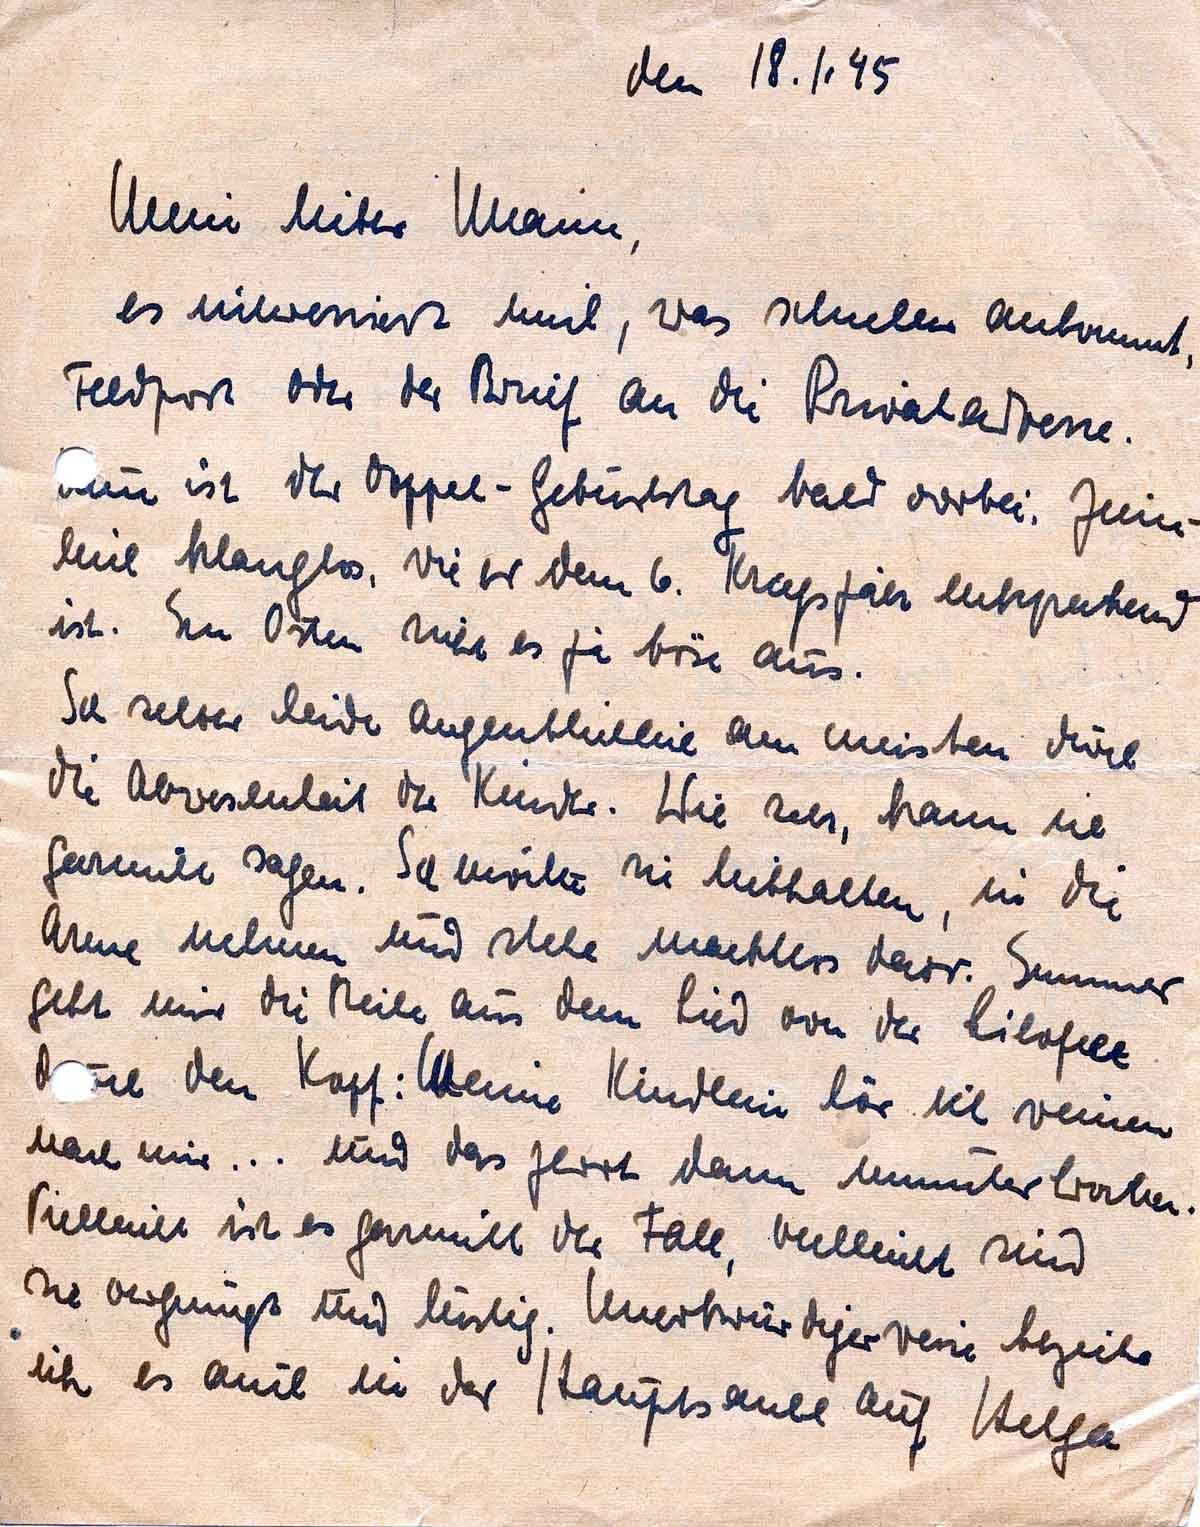 den 18.1.45
Mein lieber Mann,
es interessiert mich, was schneller ankommt,
Feldpost oder der Brief an die Privatadresse.
Nun ist der Doppel-Geburtstag bald vorbei. Ziem-
lich klanglos, wie es dem 6. Kriegsjahr entsprechend
ist. Im Osten sieht es ja böse aus.
Ich selber leide augenblicklich am meisten durch
die Abwesenheit der Kinder. Wie sehr, kann ich
garnicht sagen. Ich möchte sie liebhalten, in die
Arme nehmen und stehe machtlos davor. Immer
geht mir die Zeile aus dem Lied von der Lilofee
durch den Kopf: Meine Kindlein hör ich weinen
nach mir... und das je dann munter
Vielleicht ist es garnicht der Fall, vielleicht sind
sie vergnügt und lustig. Merkwürdigerweise beziehe
ich es auch in der Hauptsache auf Helga